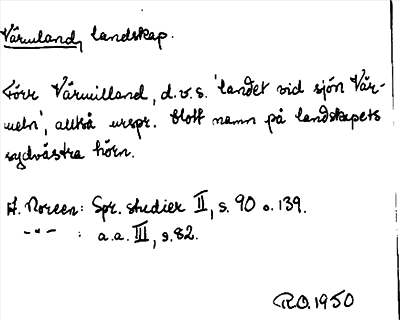 Värmland, landskap.
Förr Värmilland, d.v.s. 'landet vid sjön Vär-
meln', alltså urspr. blott namn på landskapets
sydvästra hörn.
A. Noreen: Spr. studier II, s. 90 o. 139.
-"- : a.a. III, s.82.
R.O. 1950